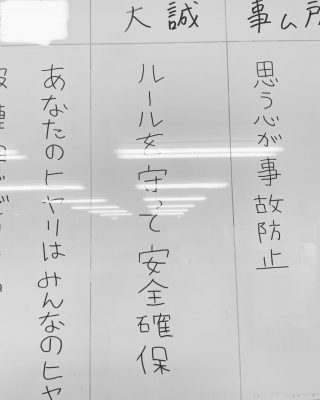 事ム所
思う心が事故防止
大誠
ルールを守って安全確保
あなたのヒヤリはみんなのヒヤ